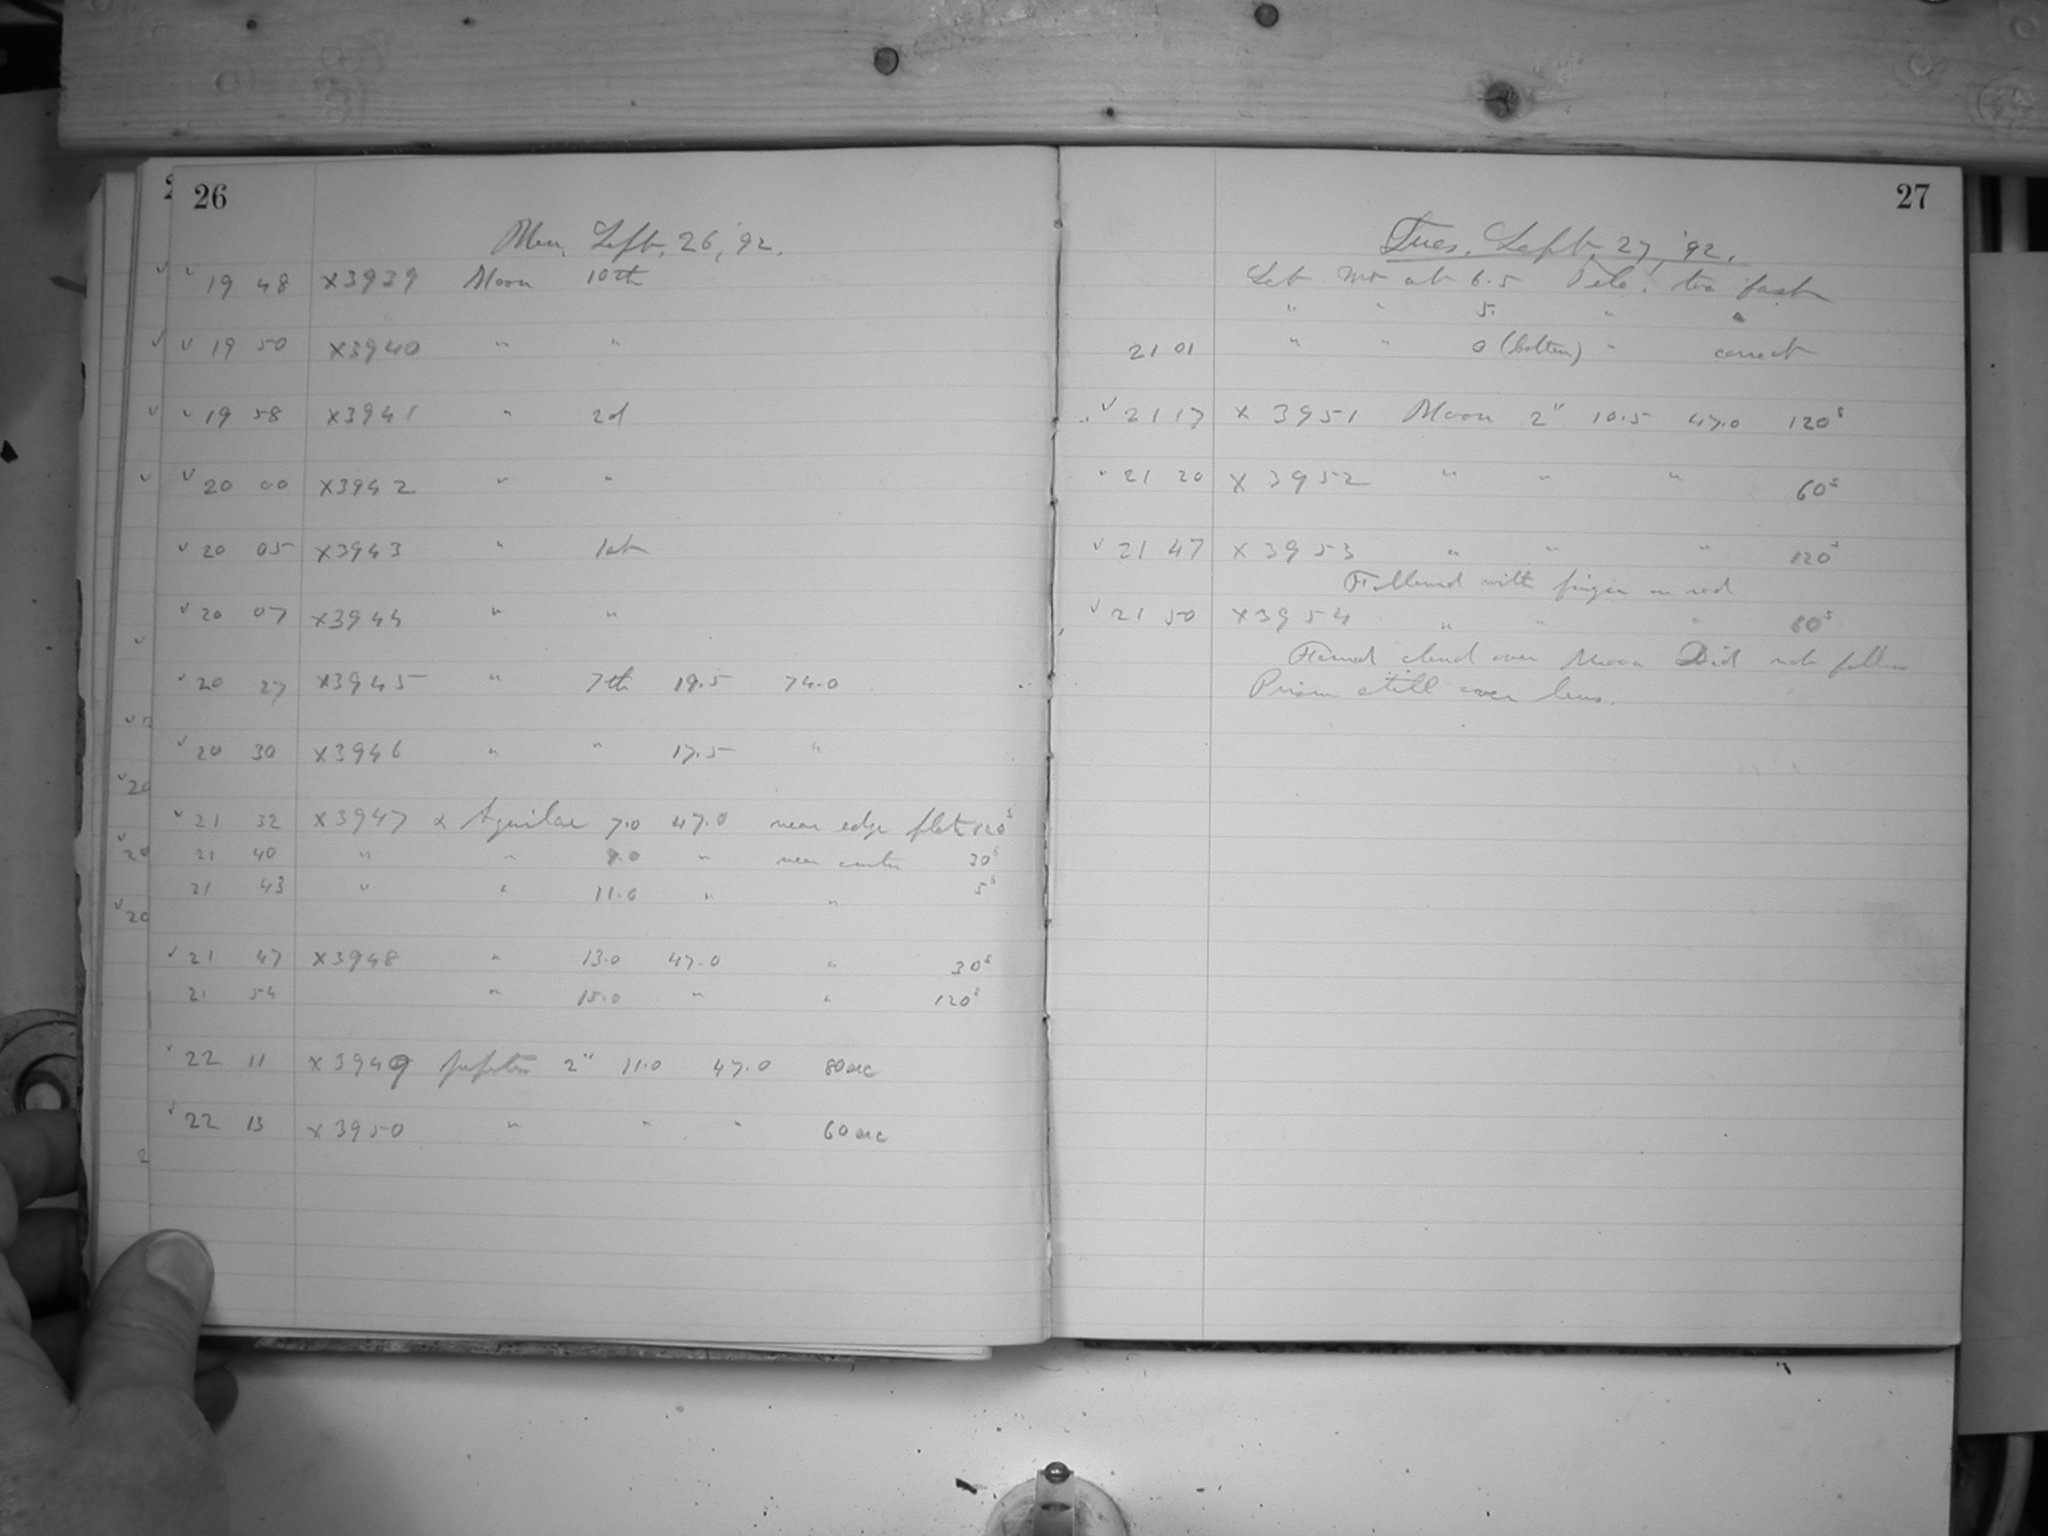 26
Mon. Sept. 26, '92.
√ √ 19 48 X3939 Moon 10th
√ √ 19 50 X3940 " "
√ √ 19 58 X3941 " 2d
√ √ 20 00 X3942 " "
√ 20 05 X3943 " 1st
√ 20 07 X3944 " "
√ 20 27 X3945 " 7th 19.5 74.0
√ 20 30 X3946 " " 17.5 "
√ 21 32 X3947 α Aquilae 7.0 47.0 near edge plate 120s
21 40 " " 9.0 " near center 30s
21 43 " " 11.0 " " 5s
√ 21 47 X3948 " 13.0 47.0 " 30s
21 54 " 15.0 " " 120s
√ 22 11 X3949 Jupiter 2" 11.0 47.0 80 sec
√ 22 13 X3950 " " " 60 sec
27
Tues. Sept. 27, '92.
Set wt at 6.5 Tel. too fast
" " 5. " "
21 01 " " 0 (bottom) " correct
√ 21 17 X 3951 Moon 2" 10.5 47.0 120s
√ 21 20 X 3952 " " " 60s
√ 21 47 X 3953 " " " 120s
Followed with finger on rod
√ 21 50 X3954 " " " 60s
Found cloud over Moon Did not follow
Prism still over lens.